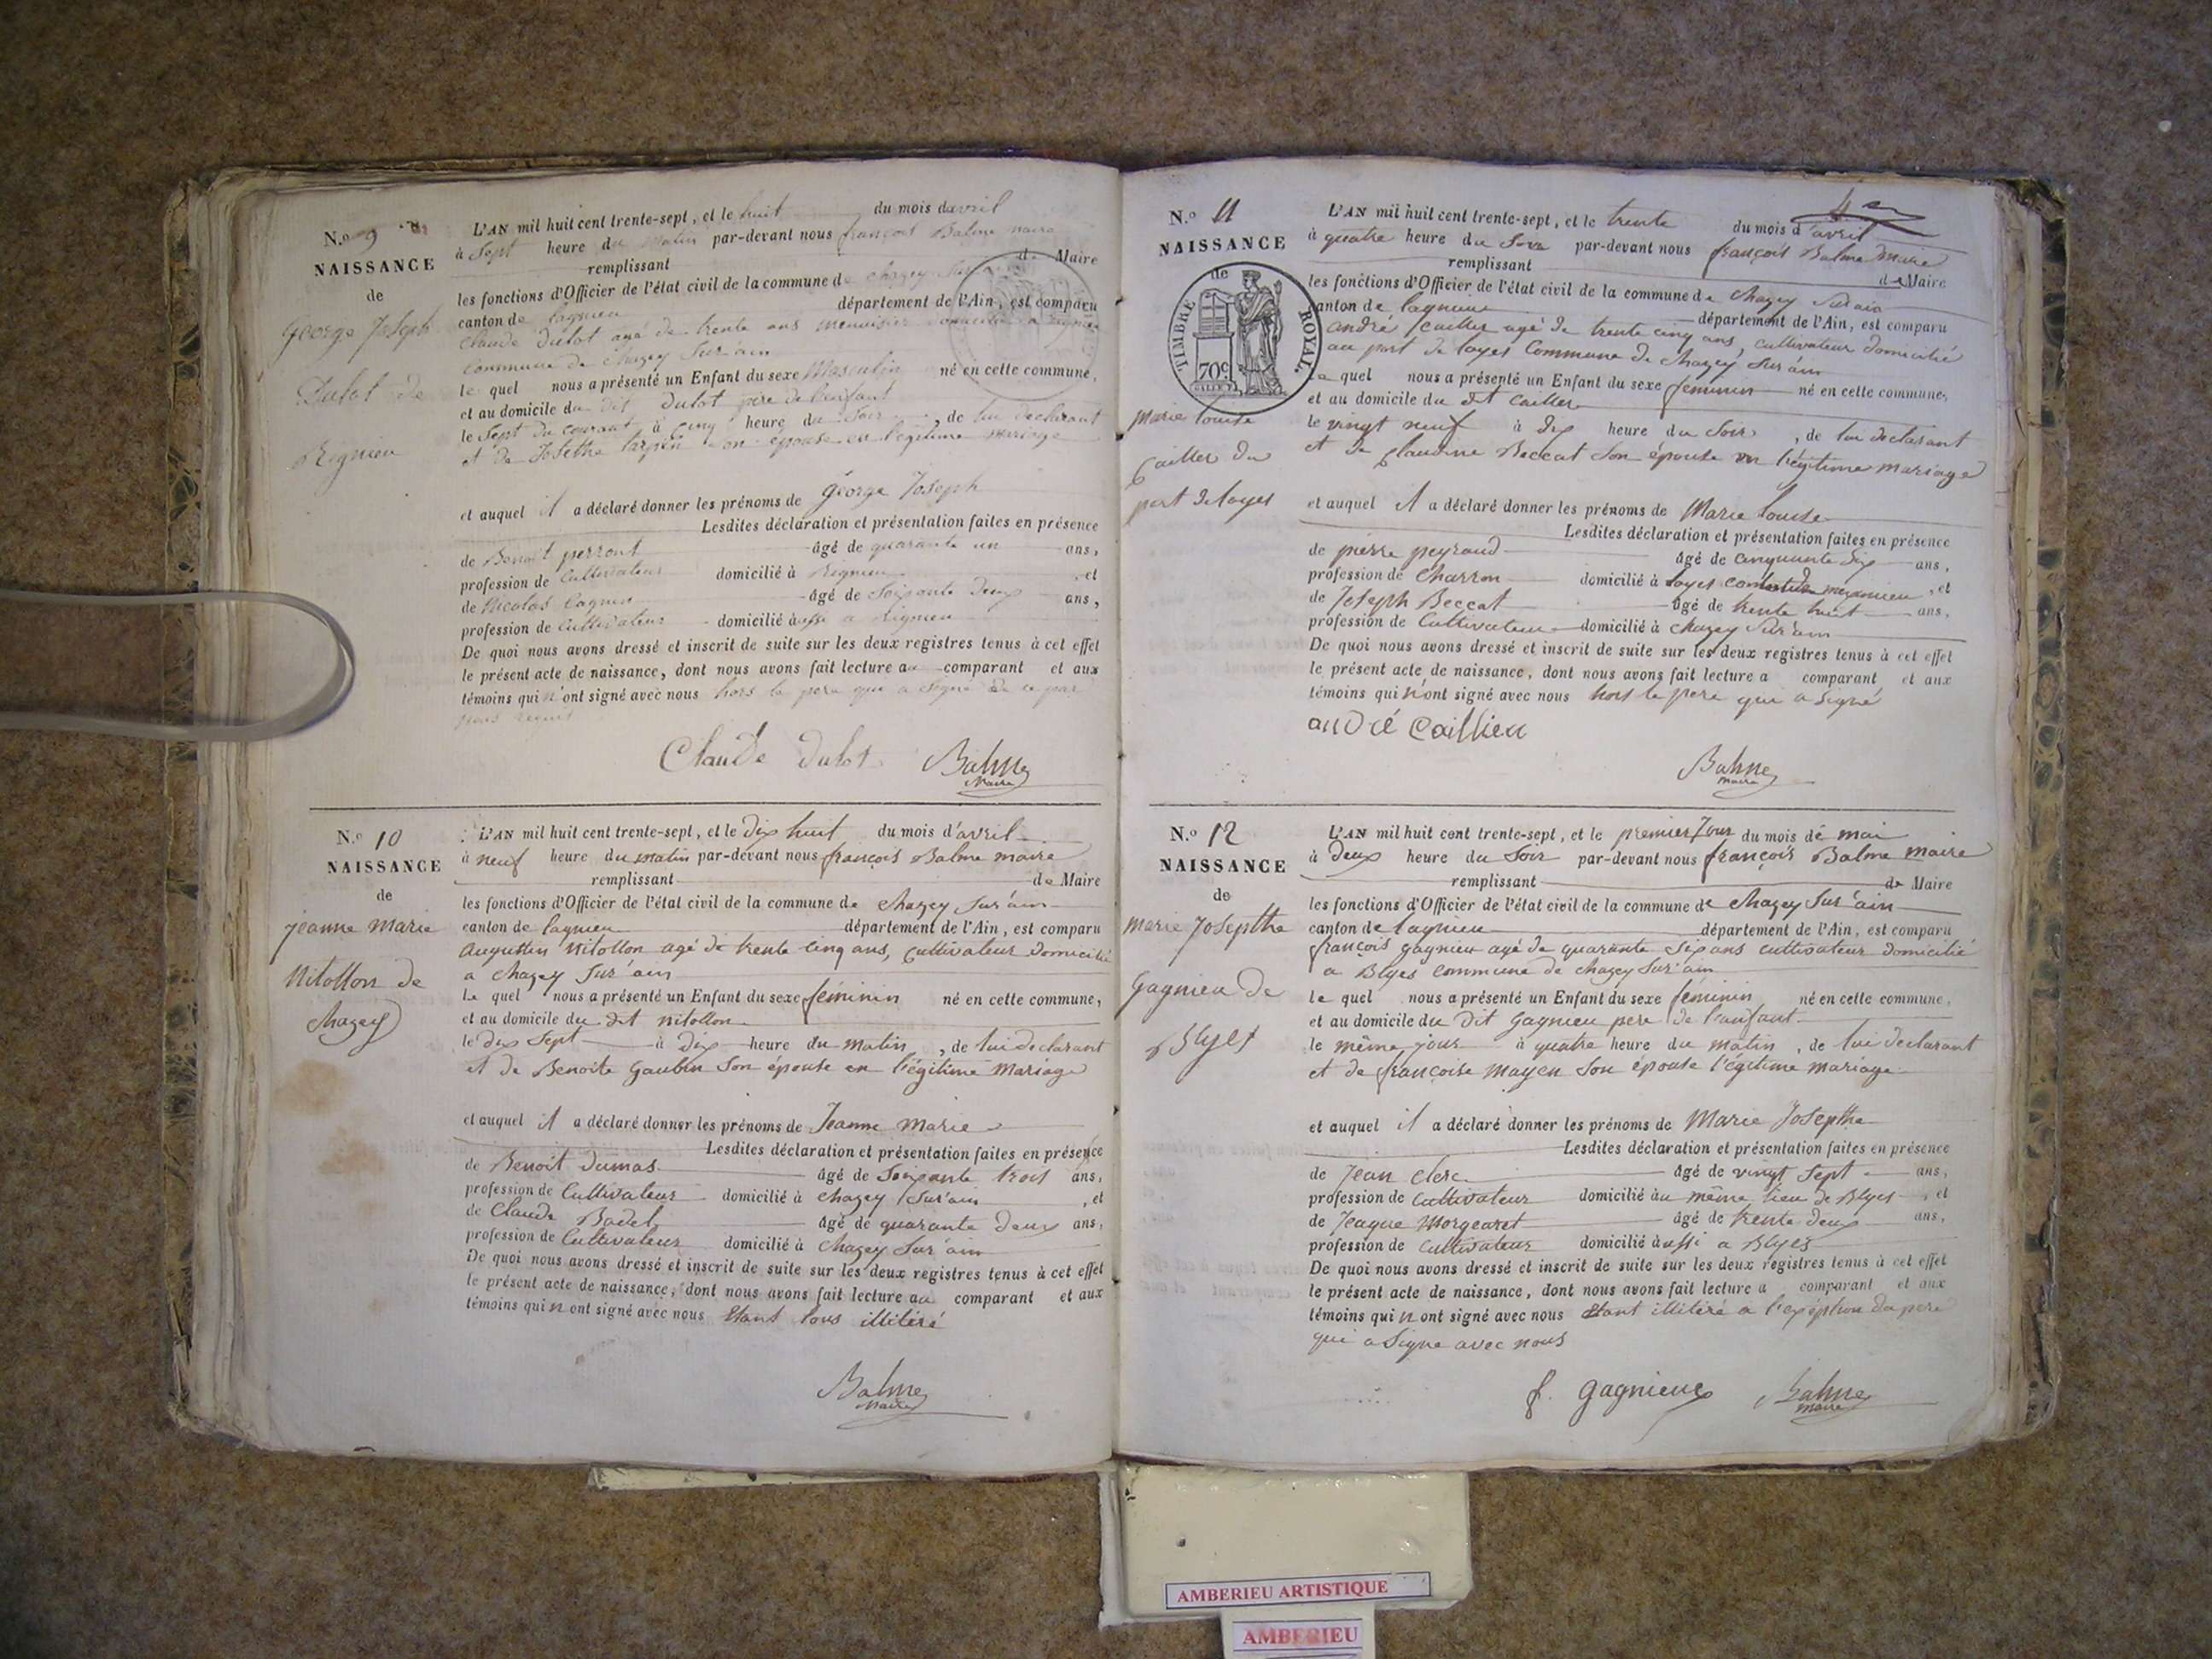 N.o 9
NAISSANCE
de
George Joseph
Dulot de
Rignieu
L'AN mil huit cent trente-sept, et le huit du mois d'avril
à Sept heure du matin par-devant nous françois Balme maire
remplissant de Maire
les fonctions d'Officier de l'état civil de la commune de Chazey Sur ain
canton de lagnieu département de l'Ain, est comparu
Claude Dulot agé de trente ans menuisier domicilié a Rignieu
commune de chazey Sur ain
le quel nous a présenté un Enfant du sexe Masculin né en cette commune,
et au domicile du dit Dulot pere de l'enfant
le Sept du courant à cinq heure du Soir, de lui declarant
et de Josethe son épouse en l'égitime mariage
et auquel il a déclaré donner les prénoms de george Joseph
Lesdites déclaration et présentation faites en présence
de Benoit perront âgé de quarante un ans,
profession de Cultivateur domicilié à Rignieu et
de Nicolas Cagnin âgé de Soixante Deux ans,
profession de Cultivateur domicilié aussi a Rignieu
De quoi nous avons dressé et inscrit de suite sur les deux registres tenus à cet effet
le présent acte de naissance, dont nous avons fait lecture au comparant et aux
témoins qui n'ont signé avec nous hors le pere qui a Signé de ce par
nous requis
Claude Dulot Balme
Maire
N.o 10
NAISSANCE
de
jeanne Marie
Nitollon de
Chazey
L'AN mil huit cent trente-sept, et le dix huit du mois d'avril
à neuf heure du matin par-devant nous françois Balme maire
remplissant de Maire
les fonctions d'Officier de l'état civil de la commune de chazey Sur'ain
canton de lagnieu département de l'Ain, est comparu
augustin Nitollon agé de trente cinq ans, Cultivateur domicilié
a chazey Sur'ain
Le quel nous a présenté un Enfant du sexe féminin né en cette commune,
et au domicile du dit nitollon
le dix Sept à dix heure du matin, de lui declarant
et de Benoite gaubin Son épouse en l'égitime Mariage
et auquel il a déclaré donner les prénoms de Jeanne Marie
Lesdites déclaration et présentation faites en présence
de Benoit Dumas âgé de Soixante trois ans,
profession de Cultivateur domicilié à chazey Sur'ain, et
de Claude Badel âgé de quarante deux ans,
profession de Cultivateur domicilié à chazey Sur'ain
De quoi nous avons dressé et inscrit de suite sur les deux registres tenus à cet effet
le présent acte de naissance, dont nous avons fait lecture au comparant et aux
témoins qui n ont signé avec nous Etant tous illitéré
Balme
Maire
N.o 11
NAISSANCE
de
TIMBRE ROYAL
70c
Marie louise
Cailler du
port De loyes
L'AN mil huit cent trente-sept, et le trente du mois d'avril
à quatre heure du Soir par-devant nous françois Balme Maire
remplissant de Maire
les fonctions d'Officier de l'état civil de la commune de chazey Sur ain
canton de lagnieu département de l'Ain, est comparu
andré cailler agé de trente cinq ans, cultivateur domicilié
au port de loyes Commune de chazey Sur'ain
le quel nous a présenté un Enfant du sexe feminin né en cette commune,
et au domicile du dit cailler
le vingt neuf à dix heure du Soir, de lui declarant
et de Claudine Beccat Son épouse en l'égitime mariage
et auquel il a déclaré donner les prénoms de Marie louise
Lesdites déclaration et présentation faites en présence
de pierre peyraud âgé de cinquante Six ans,
profession de Charron domicilié à loyes, et
de Joseph Beccat âgé de trente huit ans,
profession de Cultivateur domicilié à chazey Sur'ain
De quoi nous avons dressé et inscrit de suite sur les deux registres tenus à cet effet
le présent acte de naissance, dont nous avons fait lecture a comparant et aux
témoins qui n'ont signé avec nous hors le pere qui a Signé
andré Caillieu
Balme
maire
N.o 12
NAISSANCE
de
marie Josepthe
Gagnieu de
Blyes
L'AN mil huit cent trente-sept, et le premier Jour du mois de mai
à Deux heure du Soir par-devant nous françois Balme maire
remplissant de Maire
les fonctions d'Officier de l'état civil de la commune de Chazey Sur'ain
canton de lagnieu département de l'Ain, est comparu
françois gagnieu agé de quarante Six ans cultivateur domicilié
a Blyes commune de chazey Sur'ain
le quel nous a présenté un Enfant du sexe féminin né en cette commune,
et au domicile du Dit Gagnieu pere de l'enfant
le même jour à quatre heure du matin, de lui declarant
et de françoise mayen Son épouse l'égitime mariage
et auquel il a déclaré donner les prénoms de Marie Josepthe
Lesdites déclaration et présentation faites en présence
de Jean Clerc âgé de vingt Sept ans,
profession de Cultivateur domicilié au même lieu de Blyes, et
de Jeaque Morgearet âgé de trente deux ans,
profession de Cultivateur domicilié aussi a Blyes
De quoi nous avons dressé et inscrit de suite sur les deux registres tenus à cet effet
le présent acte de naissance, dont nous avons fait lecture a comparant et aux
témoins qui n ont signé avec nous Etant illitéré a l'exéption du pere
qui a Signe avec nous
f. gagnieux Balme
maire
AMBERIEU ARTISTIQUE
AMBERIEU